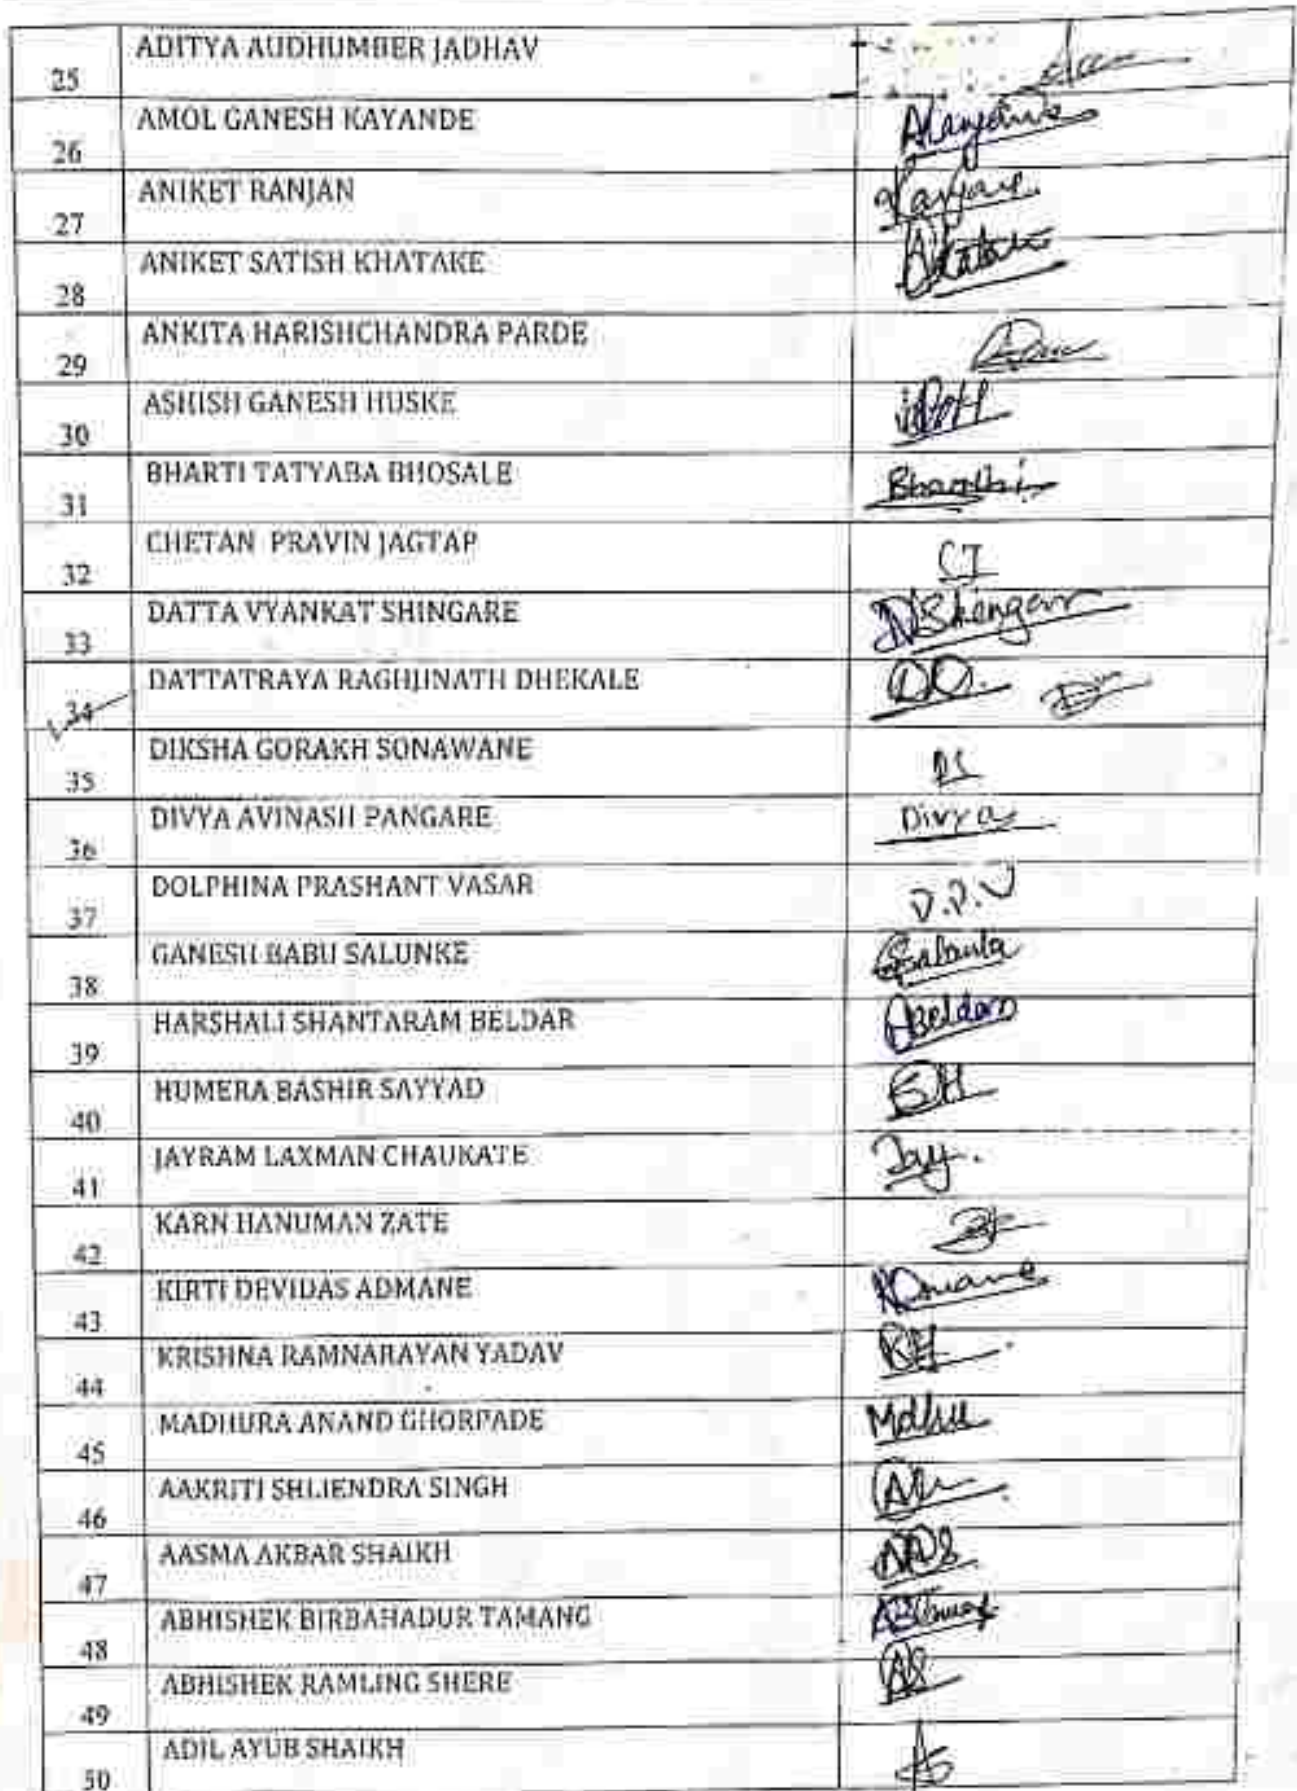 25 ADITYA AUDHUMBER JADHAV
26 AMOL GANESH KAYANDE
27 ANIKET RANJAN
28 ANIKET SATISH KHATAKE
29 ANKITA HARISHCHANDRA PARDE
30 ASHISH GANESH HUSKE
31 BHARTI TATYABA BHOSALE
32 CHETAN PRAVIN JAGTAP CJ
33 DATTA VYANKAT SHINGARE
34 DATTATRAYA RAGHUNATH DHEKALE
35 DIKSHA GORAKH SONAWANE DS
36 DIVYA AVINASH PANGARE Divya
37 DOLPHINA PRASHANT VASAR D.P.V
38 GANESH BABU SALUNKE
39 HARSHALI SHANTARAM BELDAR
40 HUMERA BASHIR SAYYAD
41 JAYRAM LAXMAN CHAUKATE Jay.
42 KARN HANUMAN ZATE
43 KIRTI DEVIDAS ADMANE
44 KRISHNA RAMNARAYAN YADAV
45 MADHURA ANAND GHORPADE
46 AAKRITI SHLIENDRA SINGH
47 AASMA AKBAR SHAIKH
48 ABHISHEK BIRBAHADUR TAMANG
49 ABHISHEK RAMLING SHERE
50 ADIL AYUB SHAIKH